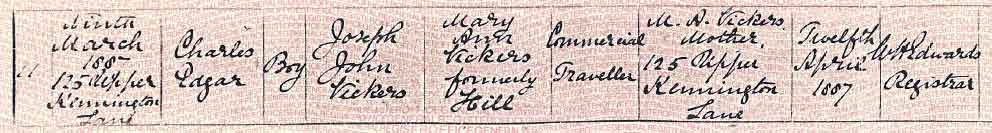 11
Ninth
March
1887
125 Upper
Kennington
Lane
Charles
Edgar
Boy
Joseph
John
Vickers
Mary
Ann
Vickers
formerly
Hill
Commercial
Traveller
M. A. Vickers
Mother,
125 Upper
Kennington
Lane
Twelfth
April
1887
W H Edwards
Registrar